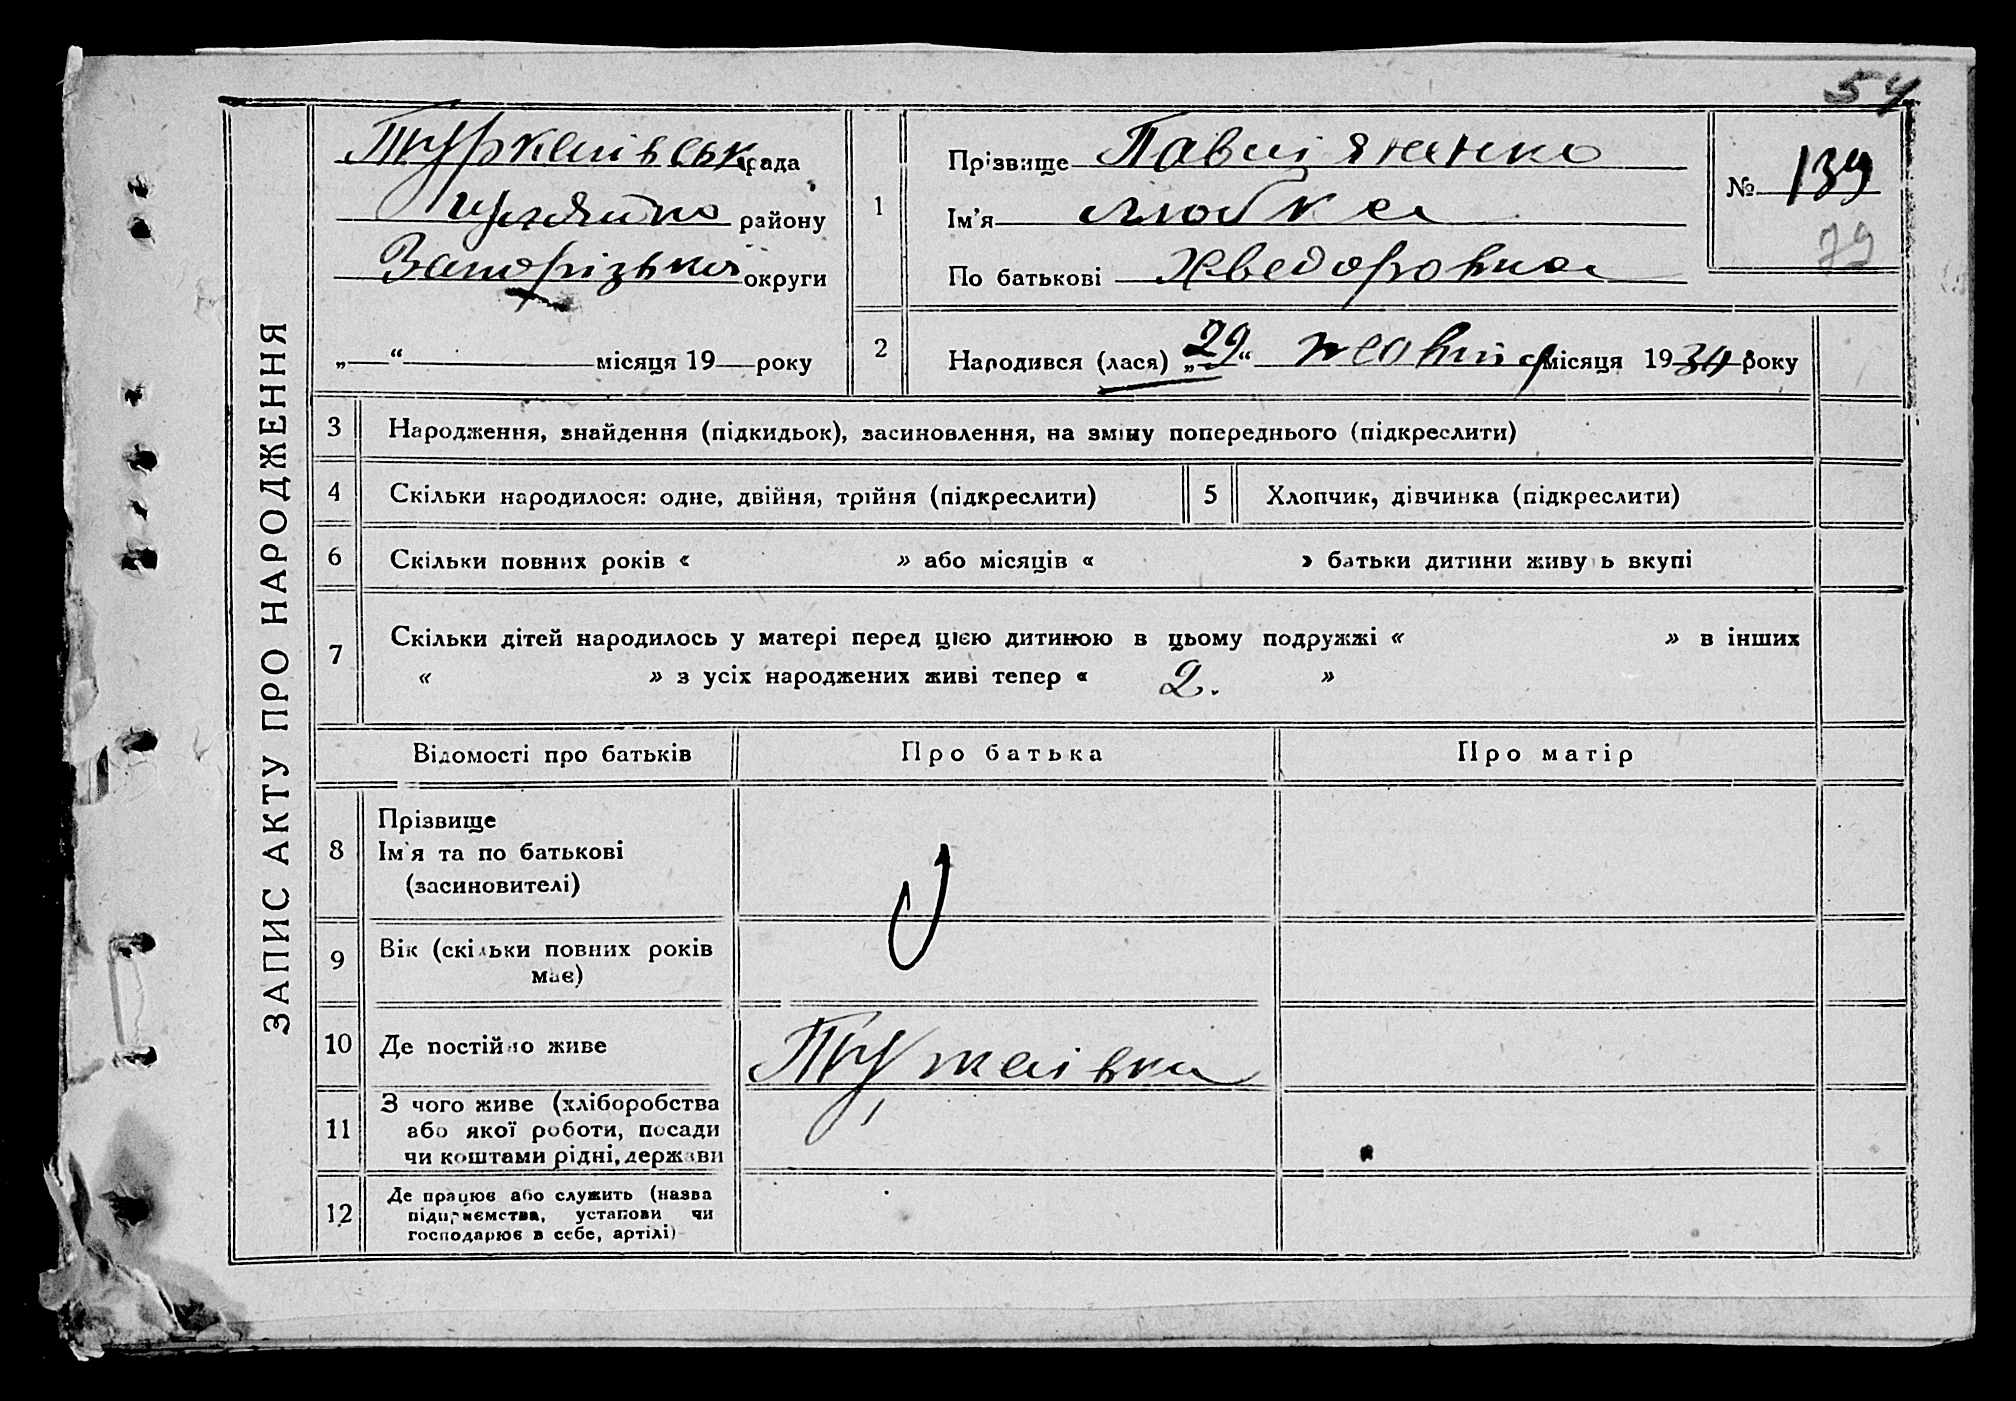 54
ЗАПИС АКТУ ПРО НАРОДЖЕННЯ
рада
району
Запорізької округи
„ “ місяця 19 року
1
Прізвище
Ім'я Любка
По батькові Хведоровна
№ 139
79
2
Народився (лася) „29“ жовтня місяця 1934 року
3
Народження, знайдення (підкидьок), засиновлення, на зміну попереднього (підкреслити)
4
Скільки народилося: одне, двійня, трійня (підкреслити)
5
Хлопчик, дівчинка (підкреслити)
6
Скільки повних років « » або місяців « » батьки дитини живуть вкупі
7
Скільки дітей народилось у матері перед цією дитиною в цьому подружжі « » в інших
« » з усіх народжених живі тепер « 2. »
Відомості про батьків
Про батька
Про матір
8
Прізвище
Ім'я та по батькові
(засиновителі)
9
Вік (скільки повних років
має)
10
Де постійно живе
11
З чого живе (хліборобства
або якої роботи, посади
чи коштами рідні, держави
12
Де працює або служить (назва
підприємства, установи чи
господарює в себе, артілі)